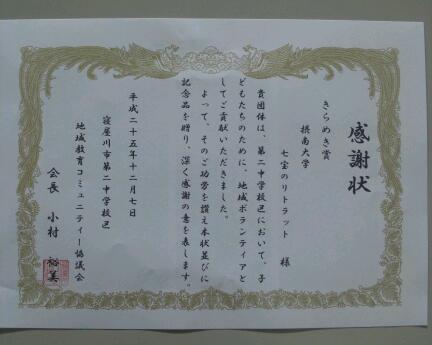 感謝状
きらめき賞
摂南大学
七宝のリトラット 様
貴団体は、第二中学校区において、子
どもたちのために、地域ボランティアと
してご貢献いただきました。
よって、そのご功労を讃え本状並びに
記念品を贈り、深く感謝の意を表します。
平成二十五年十二月七日
寝屋川市第二中学校区
地域教育コミュニティー協議会
会長 小村 裕美